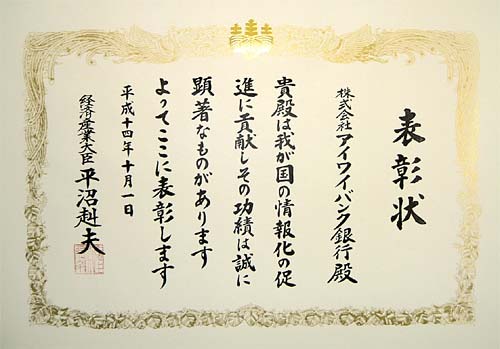 表彰状
株式会社アイワイバンク銀行殿
貴殿は我が国の情報化の促
進に貢献しその功績は誠に
顕著なものがあります
よってここに表彰します
平成十四年十月一日
経済産業大臣 平沼赳夫